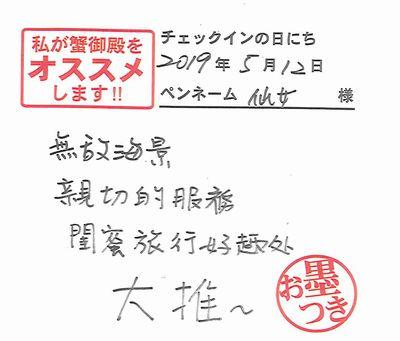 私が蟹御殿を
オススメ
します!!
チェックインの日にち
2019年5月12日
ペンネーム 仙女 様
無敵海景
親切的服務
閨蜜旅行好趣处
大推~
お墨つき